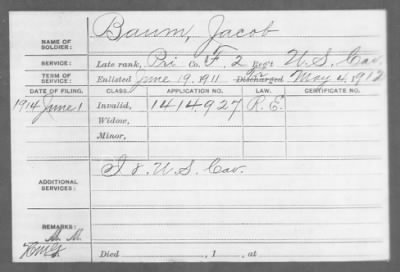 NAME OF SOLDIER: Baum, Jacob
SERVICE: Late rank, Pri Co. F, 2 Reg't U.S. Cav.
TERM OF SERVICE: Enlisted June 19, 1911 Discharged May 4, 1912
DATE OF FILING. CLASS. APPLICATION NO. LAW. CERTIFICATE NO.
1914 June 1 Invalid, 1414927 R.E.
Widow,
Minor,
ADDITIONAL SERVICES: I 8. U.S. Cav.
REMARKS:
Died , 1 , at